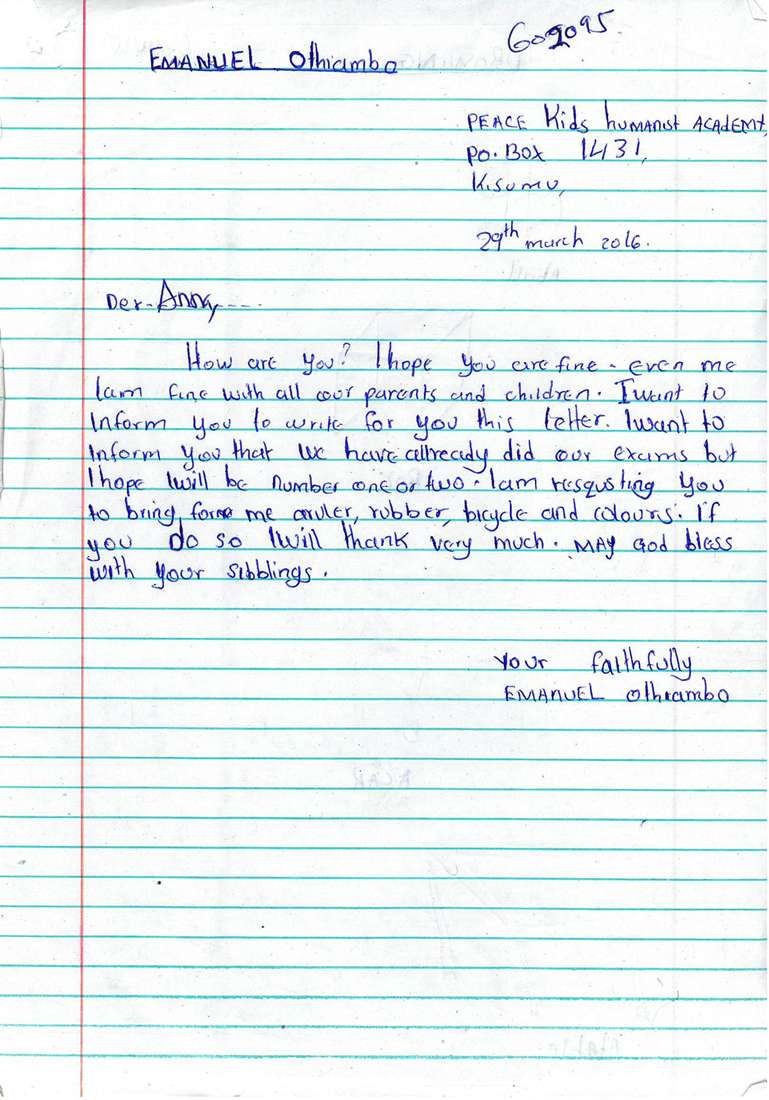 609095
EMANUEL Othiambo
PEACE Kids humanist ACADEMY,
P.O. Box 1431,
Kisumu,
29th march 2016.
Der - Anna,----.
How are you? I hope you are fine. even me
Iam fine with all our parents and children. I want to
inform you to write for you this letter. Iwant to
inform you that we have allready did our exams but
I hope Iwill be number one or two. Iam resqusting you
to bring, for me aruler, rubber, bicycle and colours. if
you do so Iwill thank very much. MAY God bless
with your sibblings.
your faithfully
EMANUEL othiambo